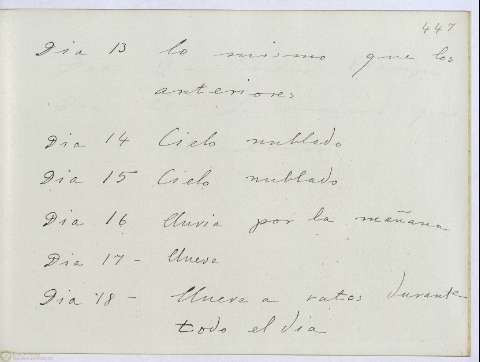 447
Dia 13 lo mismo que los
anteriores
Dia 14 Cielo nublado
Dia 15 Cielo nublado
Dia 16 lluvia por la mañana
Dia 17 - llueve
Dia 18 - llueve a ratos durante
todo el dia